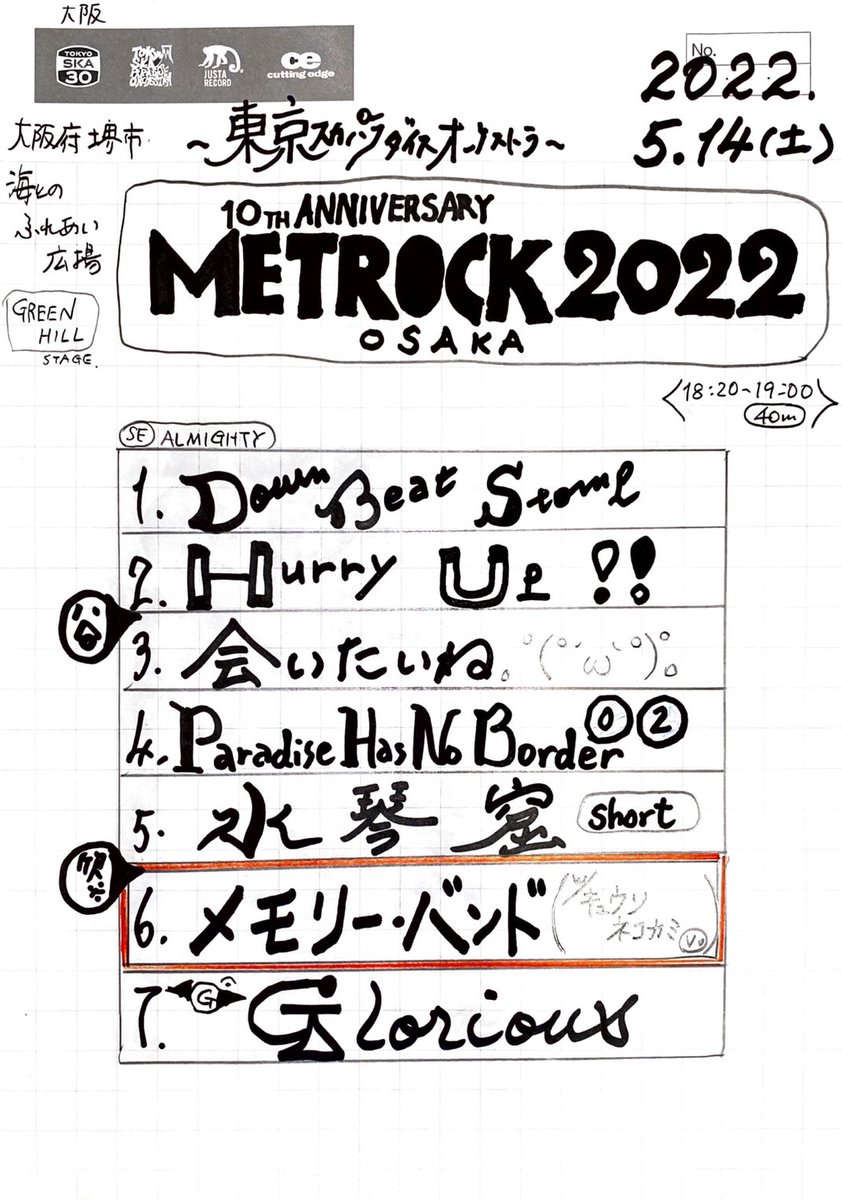 大阪
TOKYO
SKA
30
TOKYO
SKA
PARADISE
ORCHESTRA
JUSTA
RECORD
ce
cutting edge
No.
2022.
5.14(土)
大阪府堺市.
海との
ふれあい
広場
GREEN
HILL
STAGE.
〜東京スカパラダイスオーケストラ〜
10TH ANNIVERSARY
METROCK 2022
OSAKA
18:20-19:00
40m
SE ALMIGHTY
1. Down Beat Stomp
2. Hurry Up !!
3. 会いたいね。゜(゜´ω`゜)゜。
4. Paradise Has No Border 0 2
5. 水琴窟 short
6. メモリー・バンド (w/キュウソ
ネコカミ Vo)
7. G Glorious